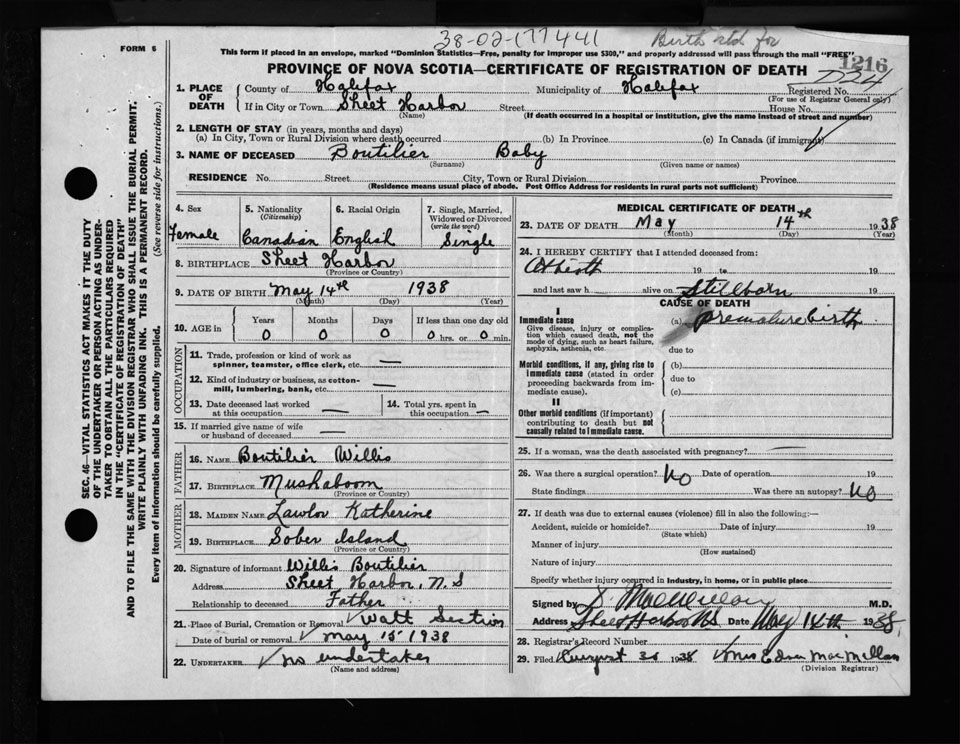 38-02-177441
Birth rtd for
FORM 6
This form if placed in an envelope, marked "Dominion Statistics—Free, penalty for improper use $300," and properly addressed will pass through the mail "FREE"
1216
PROVINCE OF NOVA SCOTIA—CERTIFICATE OF REGISTRATION OF DEATH
1. PLACE OF DEATH
County of Halifax Municipality of Halifax Registered No.
(For use of Registrar General only)
If in City or Town Sheet Harbor Street House No.
(Name) (If death occurred in a hospital or institution, give the name instead of street and number)
2. LENGTH OF STAY (in years, months and days)
(a) In City, Town or Rural Division where death occurred (b) In Province (c) In Canada (if immigrant)
3. NAME OF DECEASED Boutilier Baby
(Surname) (Given name or names)
RESIDENCE No. Street City, Town or Rural Division Province
(Residence means usual place of abode. Post Office Address for residents in rural parts not sufficient)
SEC. 46—VITAL STATISTICS ACT MAKES IT THE DUTY
OF THE UNDERTAKER OR PERSON ACTING AS UNDER-
TAKER TO OBTAIN ALL THE PARTICULARS REQUIRED
IN THE "CERTIFICATE OF REGISTRATION OF DEATH"
AND TO FILE THE SAME WITH THE DIVISION REGISTRAR WHO SHALL ISSUE THE BURIAL PERMIT.
WRITE PLAINLY WITH UNFADING INK. THIS IS A PERMANENT RECORD.
Every item of information should be carefully supplied. (See reverse side for instructions.)
4. Sex 5. Nationality 6. Racial Origin 7. Single, Married,
(Citizenship) Widowed or Divorced
(write the word)
Female Canadian English Single
8. BIRTHPLACE Sheet Harbor
(Province or Country)
9. DATE OF BIRTH May 14th 1938
(Month) (Day) (Year)
10. AGE in Years Months Days If less than one day old
0 0 0 0 hrs. or 0 min.
OCCUPATION
11. Trade, profession or kind of work as
spinner, teamster, office clerk, etc. —
12. Kind of industry or business, as cotton-
mill, lumbering, bank, etc. —
13. Date deceased last worked at this occupation —
14. Total yrs. spent in this occupation —
15. If married give name of wife
or husband of deceased —
FATHER
16. NAME Boutilier Willis
17. BIRTHPLACE Mushaboom
(Province or Country)
MOTHER
18. MAIDEN NAME Lawlor Katherine
19. BIRTHPLACE Sober Island
(Province or Country)
20. Signature of informant Willis Boutilier
Address Sheet Harbor, N.S
Relationship to deceased Father
21. Place of Burial, Cremation or Removal Watt Section
Date of burial or removal May 15 1938
22. UNDERTAKER no undertaker
(Name and address)
MEDICAL CERTIFICATE OF DEATH
23. DATE OF DEATH May 14th 1938
(Month) (Day) (Year)
24. I HEREBY CERTIFY that I attended deceased from:
19 to 19
and last saw h alive on Stillborn 19
CAUSE OF DEATH
I
Immediate cause (a) premature birth
Give disease, injury or complica-
tion which caused death, not the
mode of dying, such as heart failure,
asphyxia, asthenia, etc. due to
Morbid conditions, if any, giving rise to (b)
immediate cause (stated in order due to
proceeding backwards from im-
mediate cause). (c)
II
Other morbid conditions (if important)
contributing to death but not
causally related to immediate cause.
25. If a woman, was the death associated with pregnancy? —
26. Was there a surgical operation? No Date of operation 19
State findings Was there an autopsy? No
27. If death was due to external causes (violence) fill in also the following:—
Accident, suicide or homicide? Date of injury 19
(State which)
Manner of injury
(How sustained)
Nature of injury
Specify whether injury occurred in industry, in home, or in public place
Signed by D MacMillan M.D.
Address Sheet Harbor N.S. Date May 14th 1938
28. Registrar's Record Number
29. Filed August 1938 Mrs Edna MacMillan
(Division Registrar)